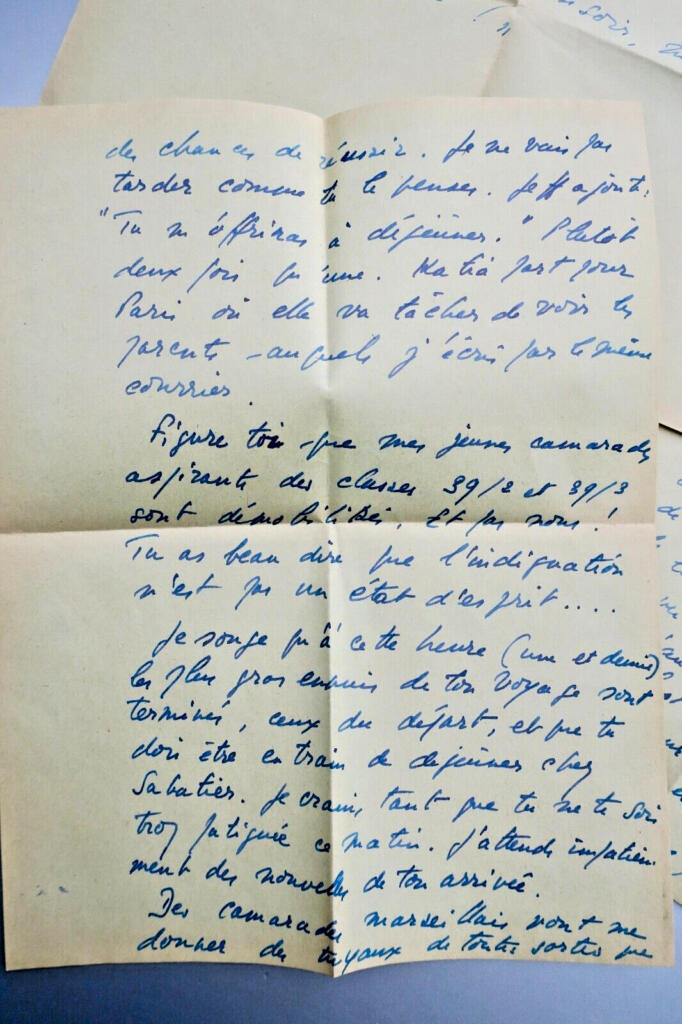 soir,
"
des chances de réussir. Je ne vais pas
tarder comme tu le penses. Jeff ajoute:
"Tu m'offriras à déjeuner." Plutôt
deux fois qu'une. Katia part pour
Paris où elle va tâcher de voir les
parents - auxquels j'écris par le même
courrier.
Figure toi que mes jeunes camarades
aspirants des classes 39/2 et 39/3
sont démobilisés. Et pas nous!
Tu as beau dire que l'indignation
n'est pas un état d'esprit....
Je songe qu'à cette heure (une et demie)
les plus gros ennuis de ton voyage sont
terminés, ceux du départ, et que tu
dois être en train de déjeuner chez
Sabatier. Je crains tant que tu ne te sois
trop fatiguée ce matin. J'attends impatiem
ment des nouvelles de ton arrivée.
Des camarades marseillais vont me
donner des tuyaux de toutes sortes que